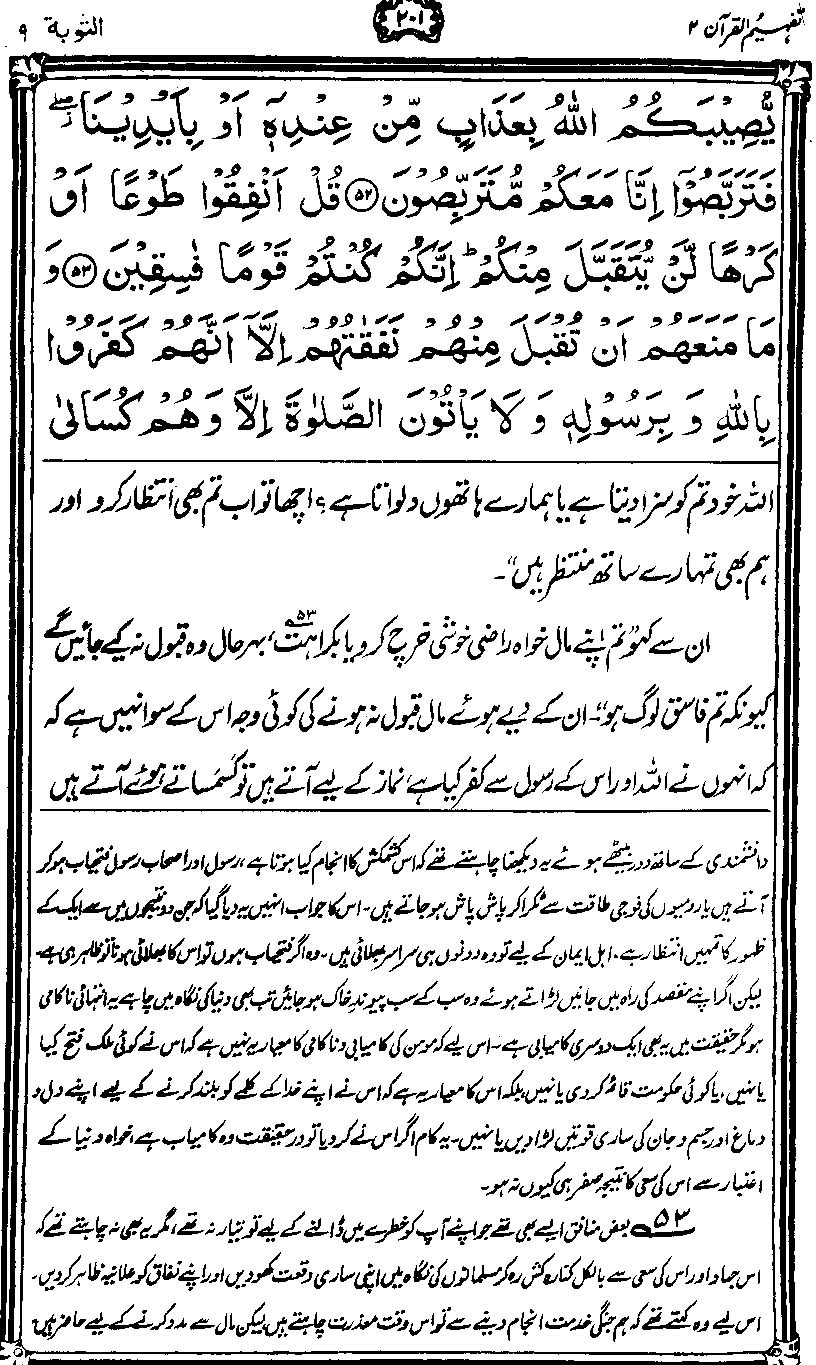 تفہیم القرآن ۲
۲۰۱
التوبة ۹
يُّصِيْبَكُمُ اللّٰهُ بِعَذَابٍ مِّنْ عِنْدِهٖۤ اَوْ بِاَيْدِيْنَا ۖ
فَتَرَبَّصُوْۤا اِنَّا مَعَكُمْ مُّتَرَبِّصُوْنَ ﴿۵۲﴾ قُلْ اَنْفِقُوْا طَوْعًا اَوْ
كَرْهًا لَّنْ يُّتَقَبَّلَ مِنْكُمْ ؕ اِنَّكُمْ كُنْتُمْ قَوْمًا فٰسِقِيْنَ ﴿۵۳﴾ وَ
مَا مَنَعَهُمْ اَنْ تُقْبَلَ مِنْهُمْ نَفَقٰتُهُمْ اِلَّاۤ اَنَّهُمْ كَفَرُوْا
بِاللّٰهِ وَ بِرَسُوْلِهٖ وَ لَا يَاْتُوْنَ الصَّلٰوةَ اِلَّا وَ هُمْ كُسَالٰى
اللہ خود تم کو سزا دیتا ہے یا ہمارے ہاتھوں دلواتا ہے؟ اچھا تو اب تم بھی انتظار کرو اور
ہم بھی تمہارے ساتھ منتظر ہیں“۔
ان سے کہو ”تم اپنے مال خواہ راضی خوشی خرچ کرو یا بکراہت،۵۳ بہر حال وہ قبول نہ کیے جائیں گے
کیونکہ تم فاسق لوگ ہو“۔ ان کے دیے ہوئے مال قبول نہ ہونے کی کوئی وجہ اس کے سوا نہیں ہے کہ
کہ انہوں نے اللہ اور اس کے رسول سے کفر کیا ہے، نماز کے لیے آتے ہیں تو کسمساتے ہوئے آتے ہیں
دانشمندی کے ساتھ دور بیٹھے ہوئے یہ دیکھنا چاہتے تھے کہ اس کشمکش کا انجام کیا ہوتا ہے، رسول اور اصحاب رسول فتحیاب ہو کر
آتے ہیں یا رومیوں کی فوجی طاقت سے ٹکرا کر پاش پاش ہو جاتے ہیں۔ اس کا جواب انہیں یہ دیا گیا کہ جن دو نتیجوں میں سے ایک کے
ظہور کا تمہیں انتظار ہے، اہل ایمان کے لیے تو وہ دونوں ہی سراسر بھلائی ہیں۔ وہ اگر فتحیاب ہوں تو اس کا بھلائی ہونا تو ظاہر ہی ہے۔
لیکن اگر اپنے مقصد کی راہ میں جانیں لڑاتے ہوئے وہ سب کے سب پیوند خاک ہو جائیں تب بھی دنیا کی نگاہ میں چاہے یہ انتہائی ناکامی
ہو مگر حقیقت میں یہ بھی ایک دوسری کامیابی ہے۔ اس لیے کہ مومن کی کامیابی و ناکامی کا معیار یہ نہیں ہے کہ اس نے کوئی ملک فتح کیا
یا نہیں، یا کوئی حکومت قائم کر دی یا نہیں، بلکہ اس کا معیار یہ ہے کہ اس نے اپنے خدا کے کلمے کو بلند کرنے کے لیے اپنے دل و
دماغ اور جسم و جان کی ساری قوتیں لڑا دیں یا نہیں۔ یہ کام اگر اس نے کر دیا تو در حقیقت وہ کامیاب ہے، خواہ دنیا کے
اعتبار سے اس کی سعی کا نتیجہ صفر ہی کیوں نہ ہو۔
۵۳ بعض منافق ایسے بھی تھے جو اپنے آپ کو خطرے میں ڈالنے کے لیے تو تیار نہ تھے، مگر یہ بھی نہ چاہتے تھے کہ
اس جہاد اور اس کی سعی سے بالکل کنارہ کش رہ کر مسلمانوں کی نگاہ میں اپنی ساری وقعت کھو دیں اور اپنے نفاق کو علانیہ ظاہر کر دیں۔
اس لیے وہ کہتے تھے کہ ہم جنگی خدمت انجام دینے سے تو اس وقت معذرت چاہتے ہیں لیکن مال سے مدد کرنے کے لیے حاضر ہیں